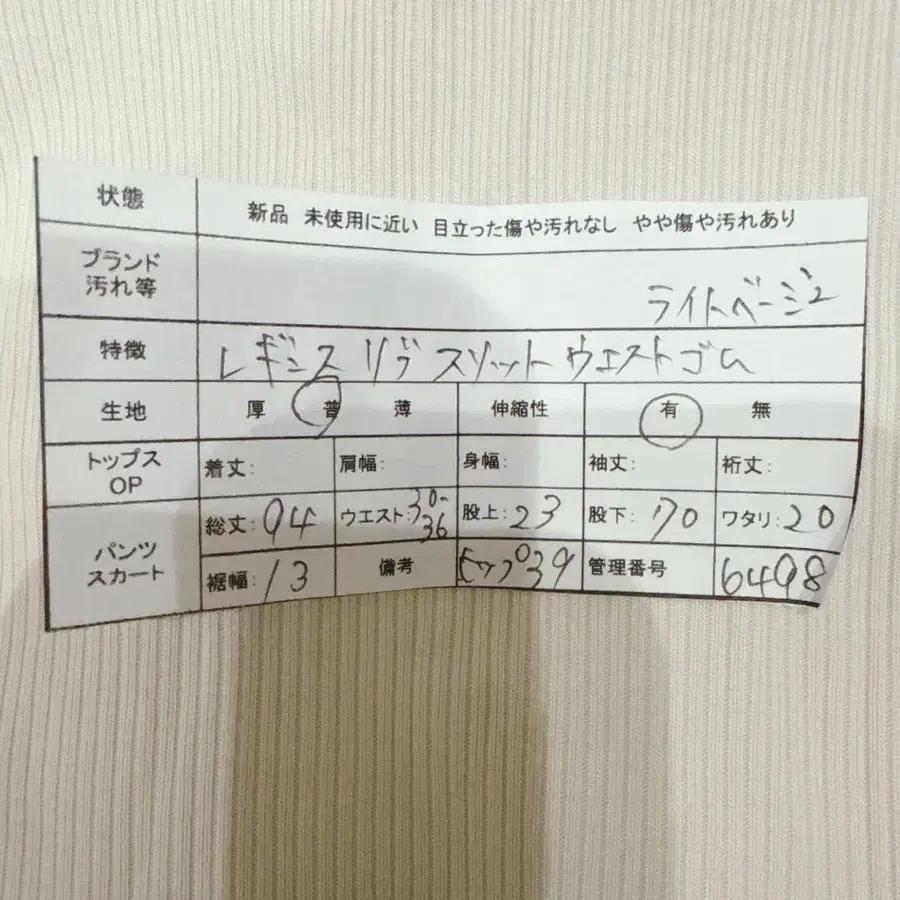 状態 新品 未使用に近い 目立った傷や汚れなし やや傷や汚れあり
ブランド
汚れ等 ライトベージュ
特徴 レギンス リブ スリット ウエストゴム
生地 厚 普 薄 伸縮性 有 無
トップス
OP 着丈: 肩幅: 身幅: 袖丈: 裄丈:
パンツ
スカート 総丈:94 ウエスト:30-36 股上:23 股下:70 ワタリ:20
裾幅:13 備考 ヒップ39 管理番号 6498